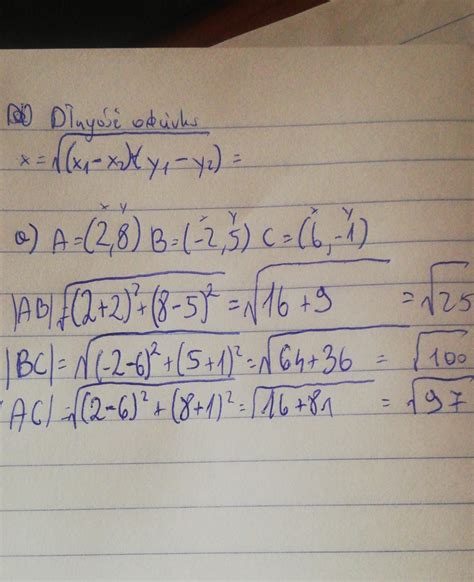 Długość odcinka
x = √(x₁-x₂)(y₁-y₂) =
x y x y x y
a) A=(2,8) B=(-2,5) C=(6,-1)
|AB|=√(2+2)²+(8-5)² = √16+9 = √25
|BC|=√(-2-6)²+(5+1)² = √64+36 = √100
|AC|=√(2-6)²+(8+1)² = √16+81 = √97